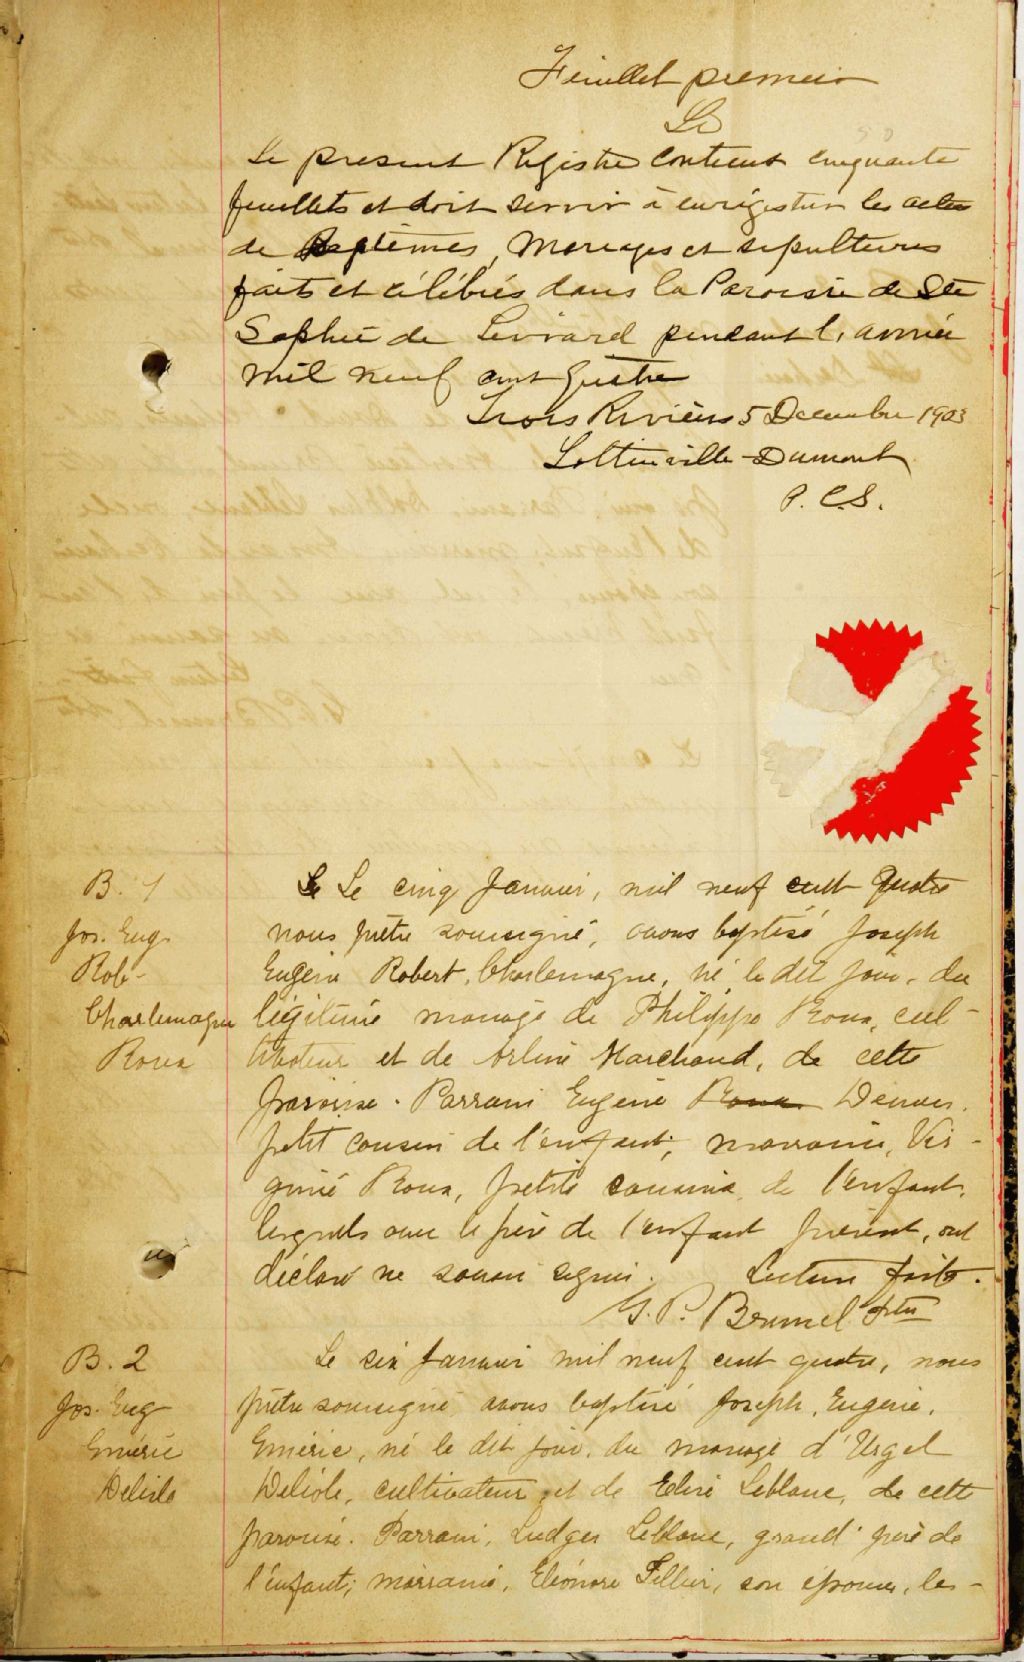 Feuillet premier
Le
Le present Registre contient cinquante
feuillets et doit servir à enregistrer les actes
de Baptêmes, Mariages et sepultures
faits et célébrés dans la Paroisse de Ste
Sophie de Levrard pendant l'année
mil neuf cent quatre
Trois Rivières 5 Decembre 1903
Lottinville-Dumont
P. C.S.
B. 1
Jos. Eug.
Rob-
Charlemagne
Roux
Le Le cinq Janvier, mil neuf cent quatre
nous prêtre soussigné, avons baptisé Joseph
Eugène Robert, Charlemagne, né, le dit jour, du
légitime mariage de Philippe Roux, cul-
tivateur et de Arline Marchand, de cette
paroisse. Parrain Eugène Roux
petit cousin de l'enfant; marraine, Vir-
ginie Roux, petite cousine, de l'enfant,
lesquels avec le père de l'enfant présent, ont
déclaré ne savoir signer. Lecture faite.
G. P. Brunel Ptre
B. 2
Jos. Eug
Emérie
Delisle
Le six Janvier mil neuf cent quatre, nous
prêtre soussigné avons baptisé Joseph, Eugène,
Emérie, né le dit jour, du mariage d'Urgel
Delisle, cultivateur et de Elisé Leblanc, de cette
paroisse. Parrain, Ludger Leblanc, grand' père de
l'enfant; marraine, Eléonore son épouse, les-